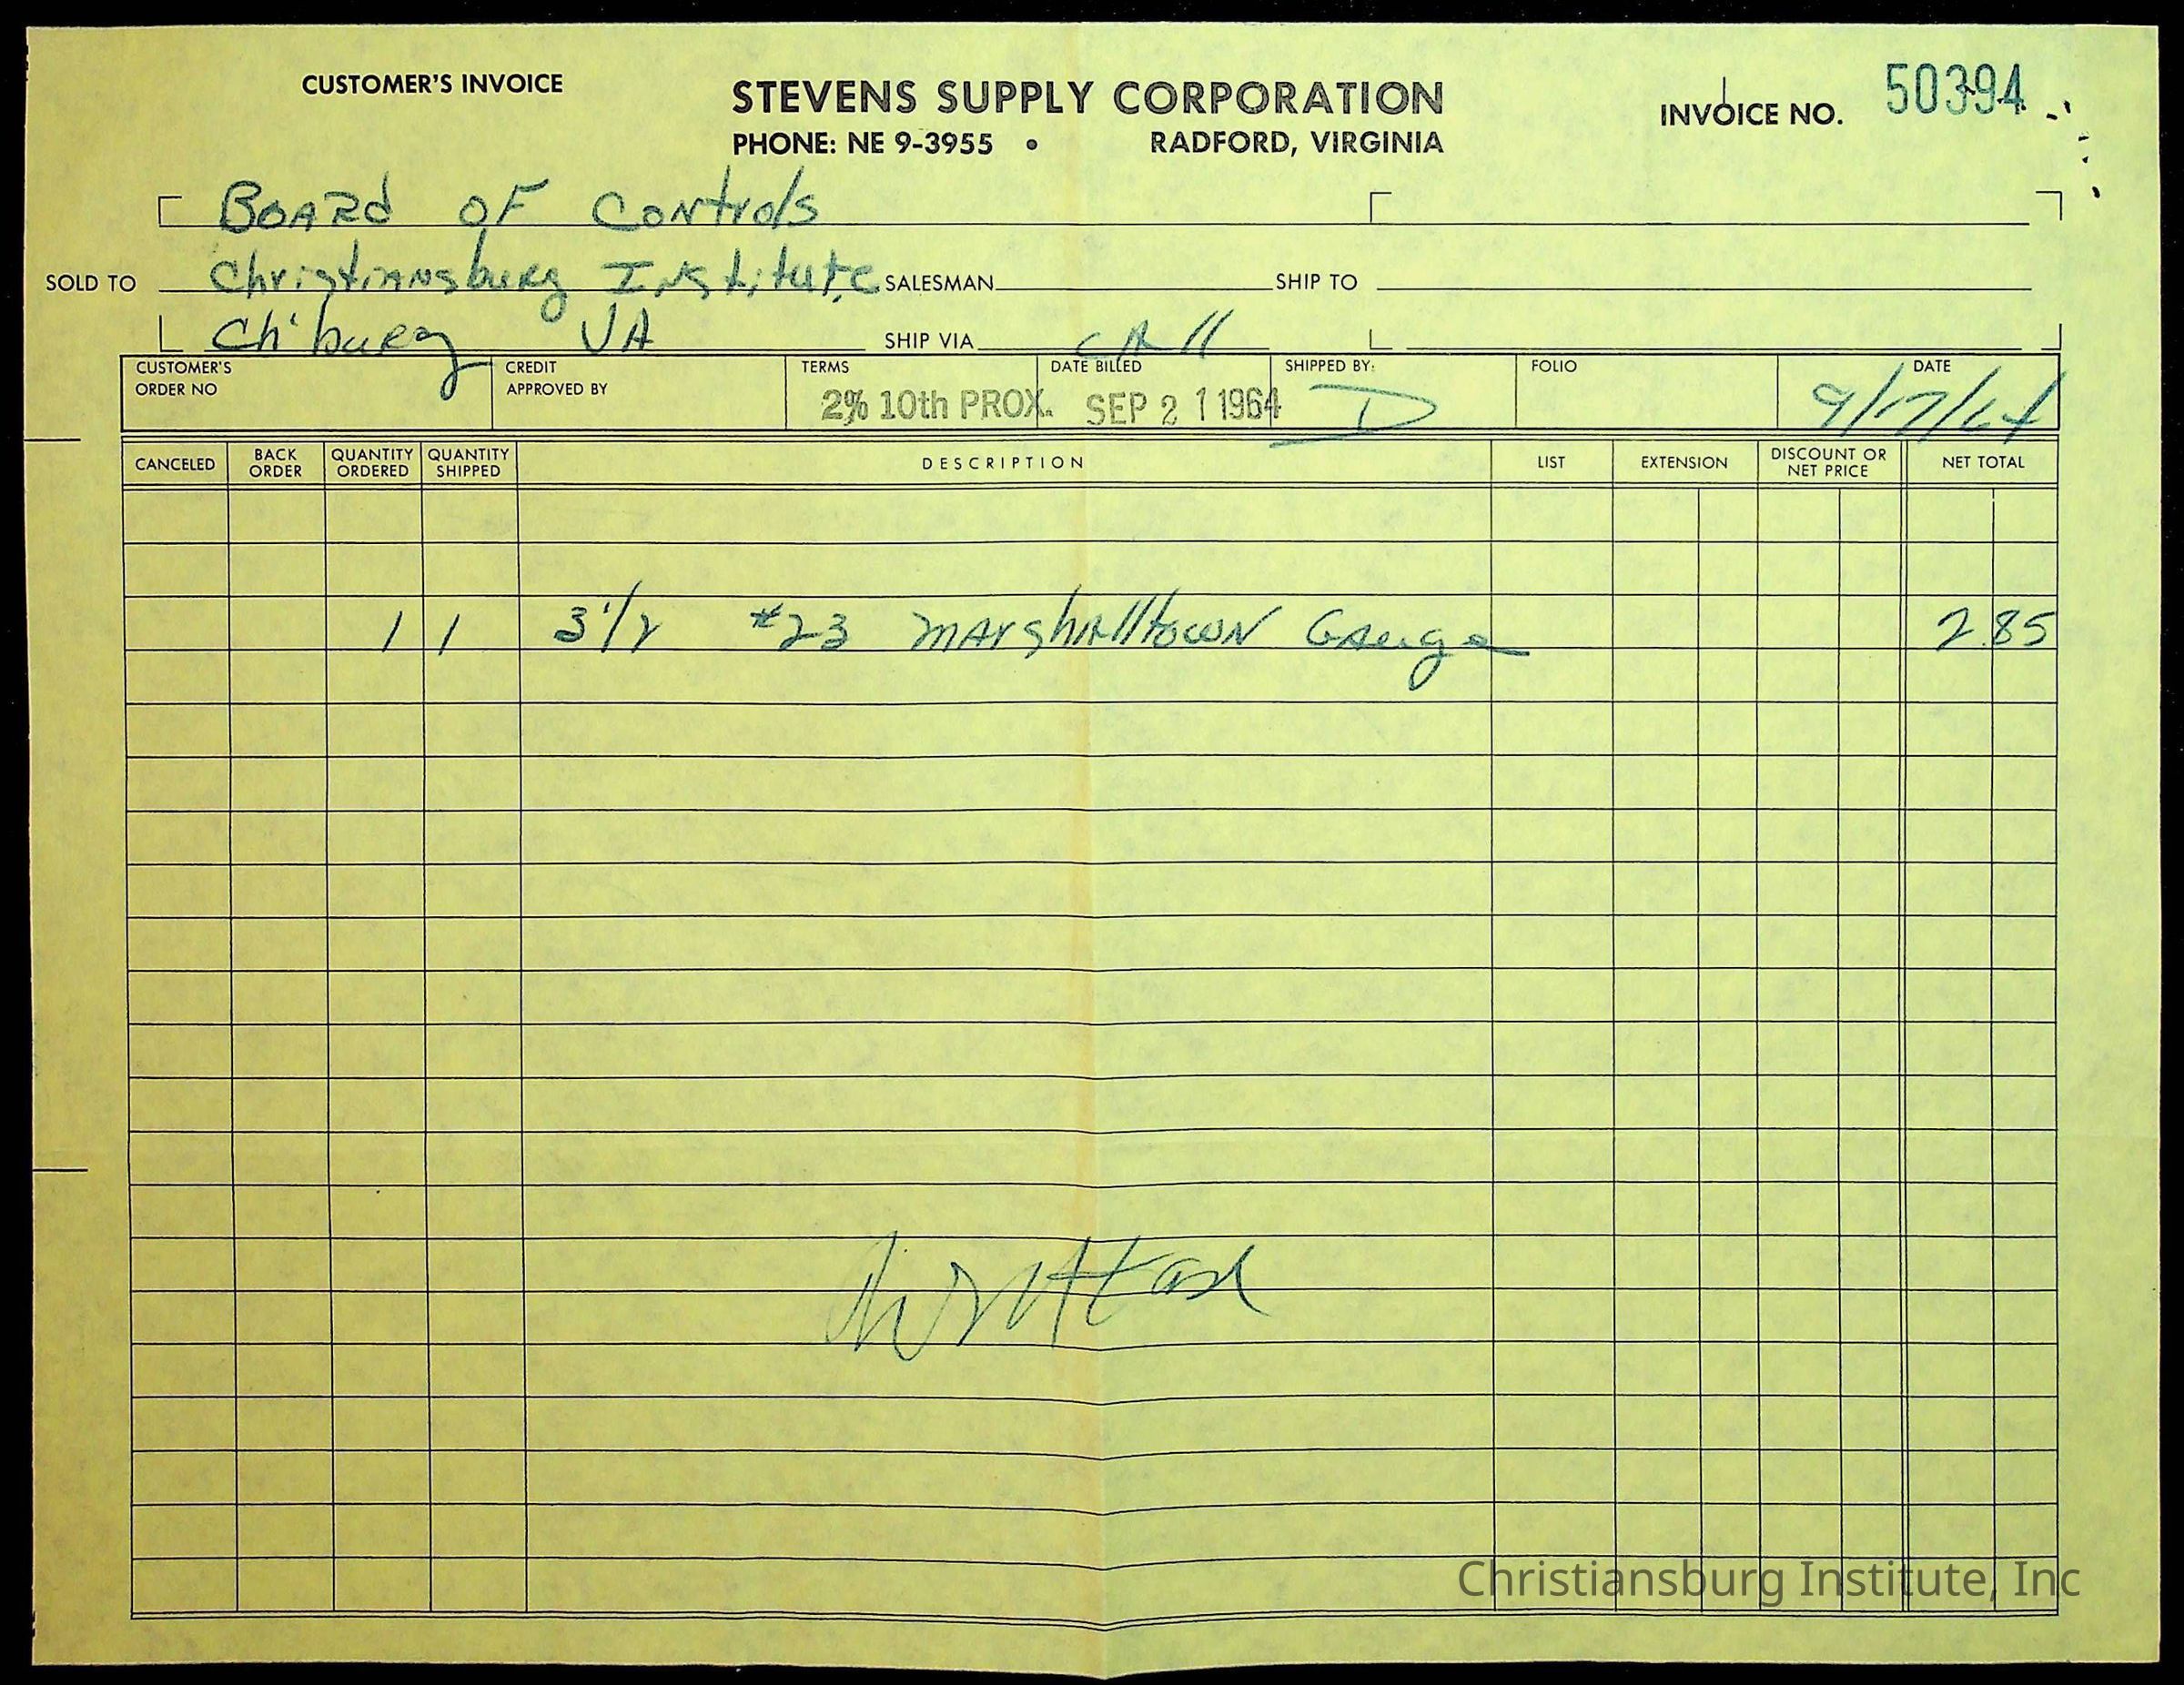 CUSTOMER'S INVOICE
STEVENS SUPPLY CORPORATION
INVOICE NO. 50394
PHONE: NE 9-3955 • RADFORD, VIRGINIA
BOARd OF Controls
SOLD TO Christiansburg Institute SALESMAN SHIP TO
Ch'burg VA SHIP VIA CAll
CUSTOMER'S ORDER NO
CREDIT APPROVED BY
TERMS 2% 10th PROX.
DATE BILLED SEP 21 1964
SHIPPED BY: D
FOLIO
DATE 9/17/64
CANCELED BACK ORDER QUANTITY ORDERED QUANTITY SHIPPED DESCRIPTION LIST EXTENSION DISCOUNT OR NET PRICE NET TOTAL
1 1 3 1/2 #23 Marshalltown Gauge 2.85
Christiansburg Institute, Inc